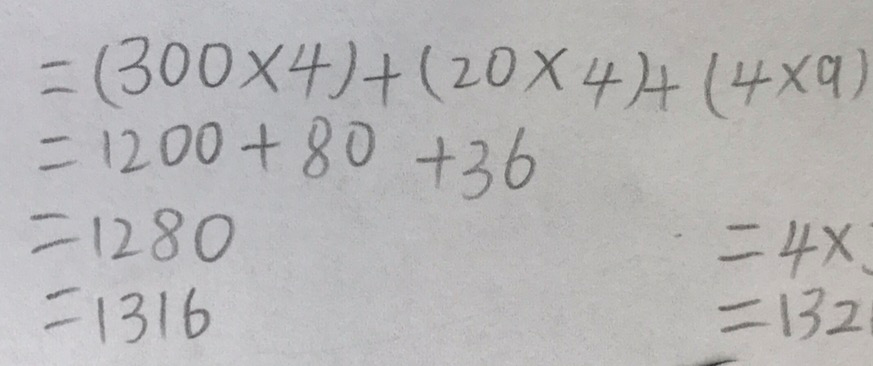 =(300×4)+(20×4)+(4×9)
=1200+80+36
=1280
=1316
=4×
=132